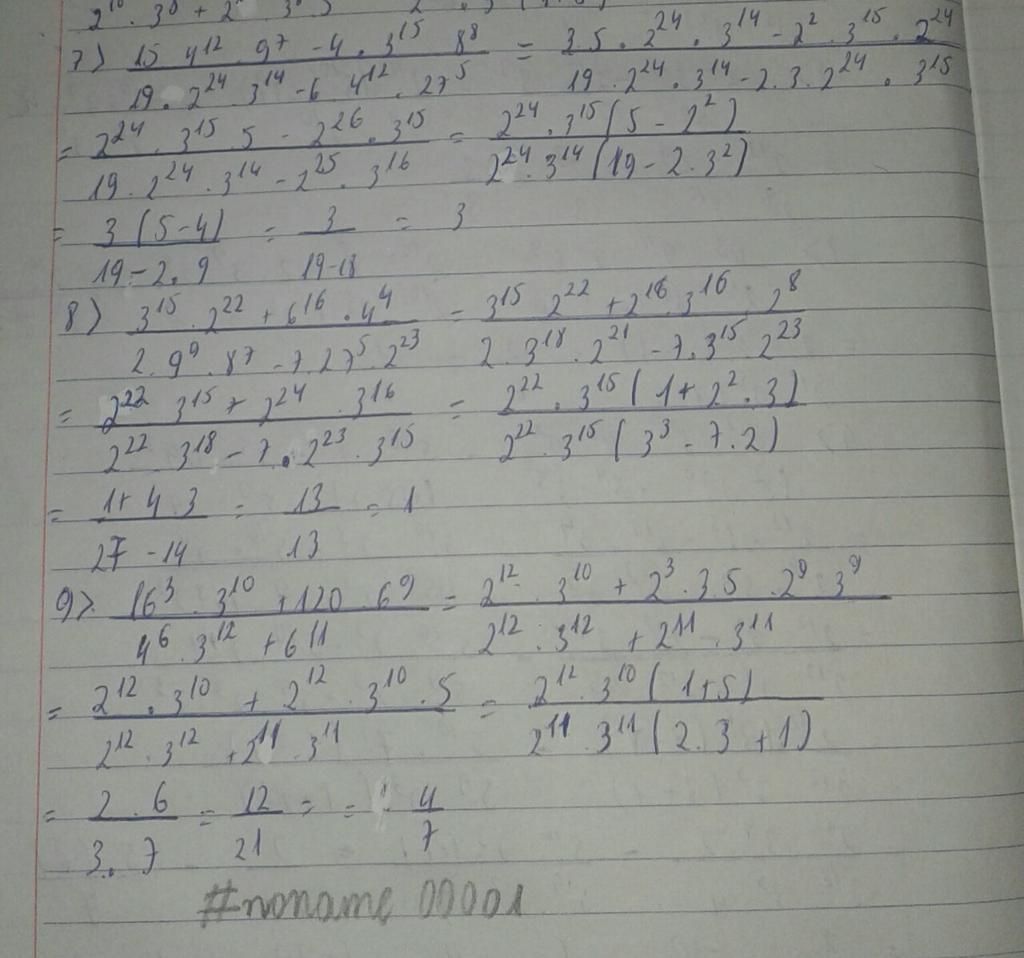 2¹⁰ · 3⁸ + 2
7) (15 4¹² 9⁷ - 4 · 3¹⁵ 8⁸) / (19 · 2²⁴ 3¹⁴ - 6 4¹² · 27⁵) = (3.5 · 2²⁴ · 3¹⁴ - 2² · 3¹⁵ · 2²⁴) / (19 · 2²⁴ · 3¹⁴ - 2.3.2²⁴ · 3¹⁵)
= (2²⁴ · 3¹⁵ · 5 - 2²⁶ · 3¹⁵) / (19 · 2²⁴ · 3¹⁴ - 2²⁵ · 3¹⁶) = (2²⁴ · 3¹⁵ (5 - 2²)) / (2²⁴ · 3¹⁴ (19 - 2.3²))
= (3 (5-4)) / (19-2.9) = 3 / (19-18) = 3
8) (3¹⁵ · 2²² + 6¹⁶ · 4⁴) / (2 · 9⁹ · 8⁷ - 7 27⁵ · 2²³) = (3¹⁵ 2²² + 2¹⁶ · 3¹⁶ · 2⁸) / (2 · 3¹⁸ · 2²¹ - 7 · 3¹⁵ 2²³)
= (2²² 3¹⁵ + 2²⁴ · 3¹⁶) / (2²² 3¹⁸ - 7 · 2²³ · 3¹⁵) = (2²² · 3¹⁵ (1 + 2² · 3)) / (2²² · 3¹⁵ (3³ - 7.2))
= (1+ 4 3) / (27 - 14) = 13 / 13 = 1
9) (16³ · 3¹⁰ + 120 · 6⁹) / (4⁶ · 3¹² + 6¹¹) = (2¹² · 3¹⁰ + 2³ · 3.5 · 2⁹ · 3⁹) / (2¹² · 3¹² + 2¹¹ · 3¹¹)
= (2¹² · 3¹⁰ + 2¹² · 3¹⁰ · 5) / (2¹² · 3¹² + 2¹¹ · 3¹¹) = (2¹² · 3¹⁰ (1+5)) / (2¹¹ · 3¹¹ (2.3 + 1))
= (2 · 6) / (3 · 7) = 12 / 21 = = 4 / 7
#noname 00001